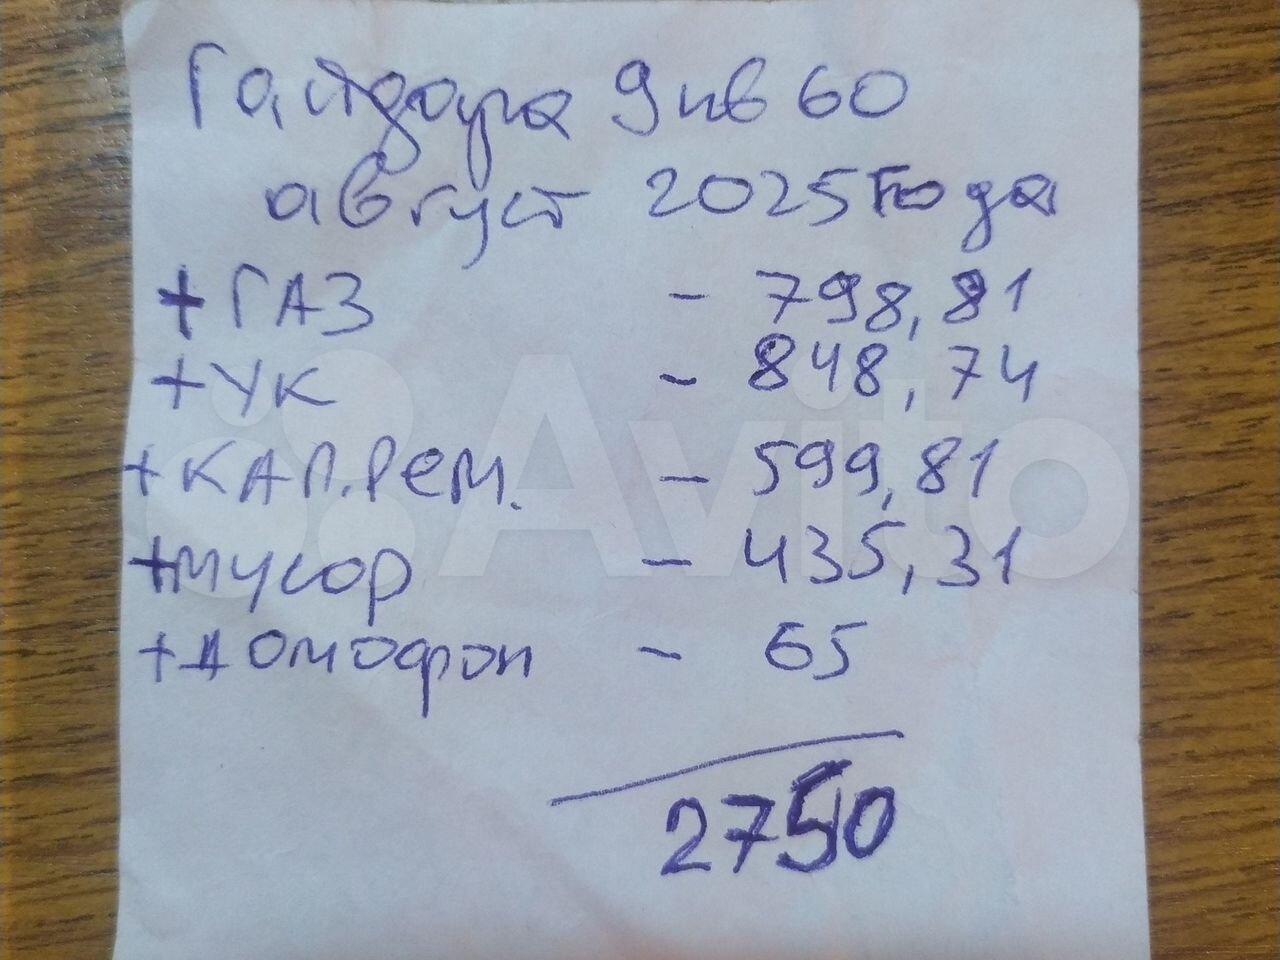 Гайдара 9 кв 60
август 2025 года
+ ГАЗ - 798,81
+ УК - 848,74
+ КАП.РЕМ. - 599,81
+ мусор - 435,31
+ Домофон - 65
2750
Avito